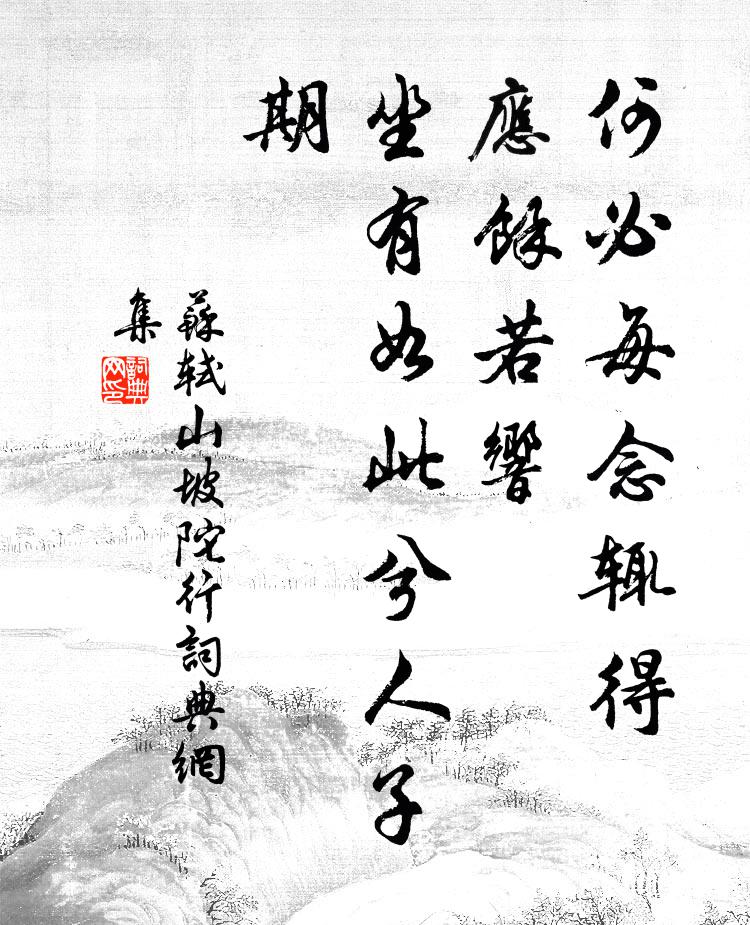 何必每念輒得
應餘若響
坐有如此兮人子
期
蘇軾山坡陀行詞典網
集
詞典
网印